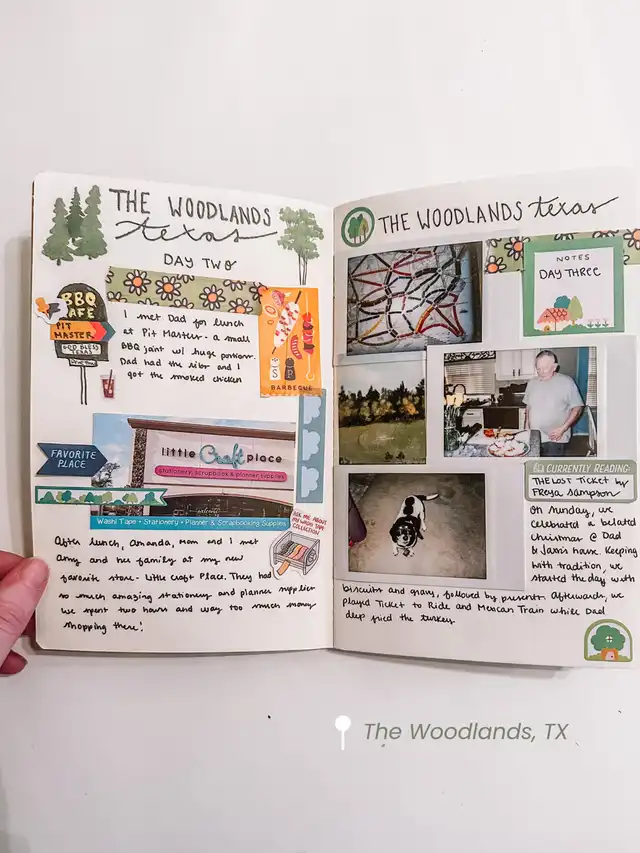 THE WOODLANDS
texas
DAY TWO
BBQ
CAFE
PIT
MASTER
GOD BLESS
TEXAS
I met Dad for lunch
at Pit Master - a small
BBQ joint w/ huge portions.
Dad had the ribs and I
got the smoked chicken
S
P
BARBECUE
FAVORITE
PLACE
little Craft place
stationery, scrapbook & planner supplies
Washi Tape • Stationery • Planner & Scrapbooking Supplies
ASK ME ABOUT
MY WASHI TAPE
COLLECTION!
After lunch, Amanda, Mom and I met
Amy and her family at my new
favorite store - Little Craft Place. They had
so much amazing stationery and planner supplies
we spent two hours and way too much money
shopping there!
THE WOODLANDS texas
NOTES
DAY THREE
CURRENTLY READING:
THE LOST TICKET by
Freya Sampson
On Sunday, we
celebrated a belated
Christmas @ Dad
& Jan's house. Keeping
with tradition, we
started the day with
biscuits and gravy, followed by presents. Afterwards, we
played Ticket to Ride and Mexican Train while Dad
deep fried the turkey.
The Woodlands, TX